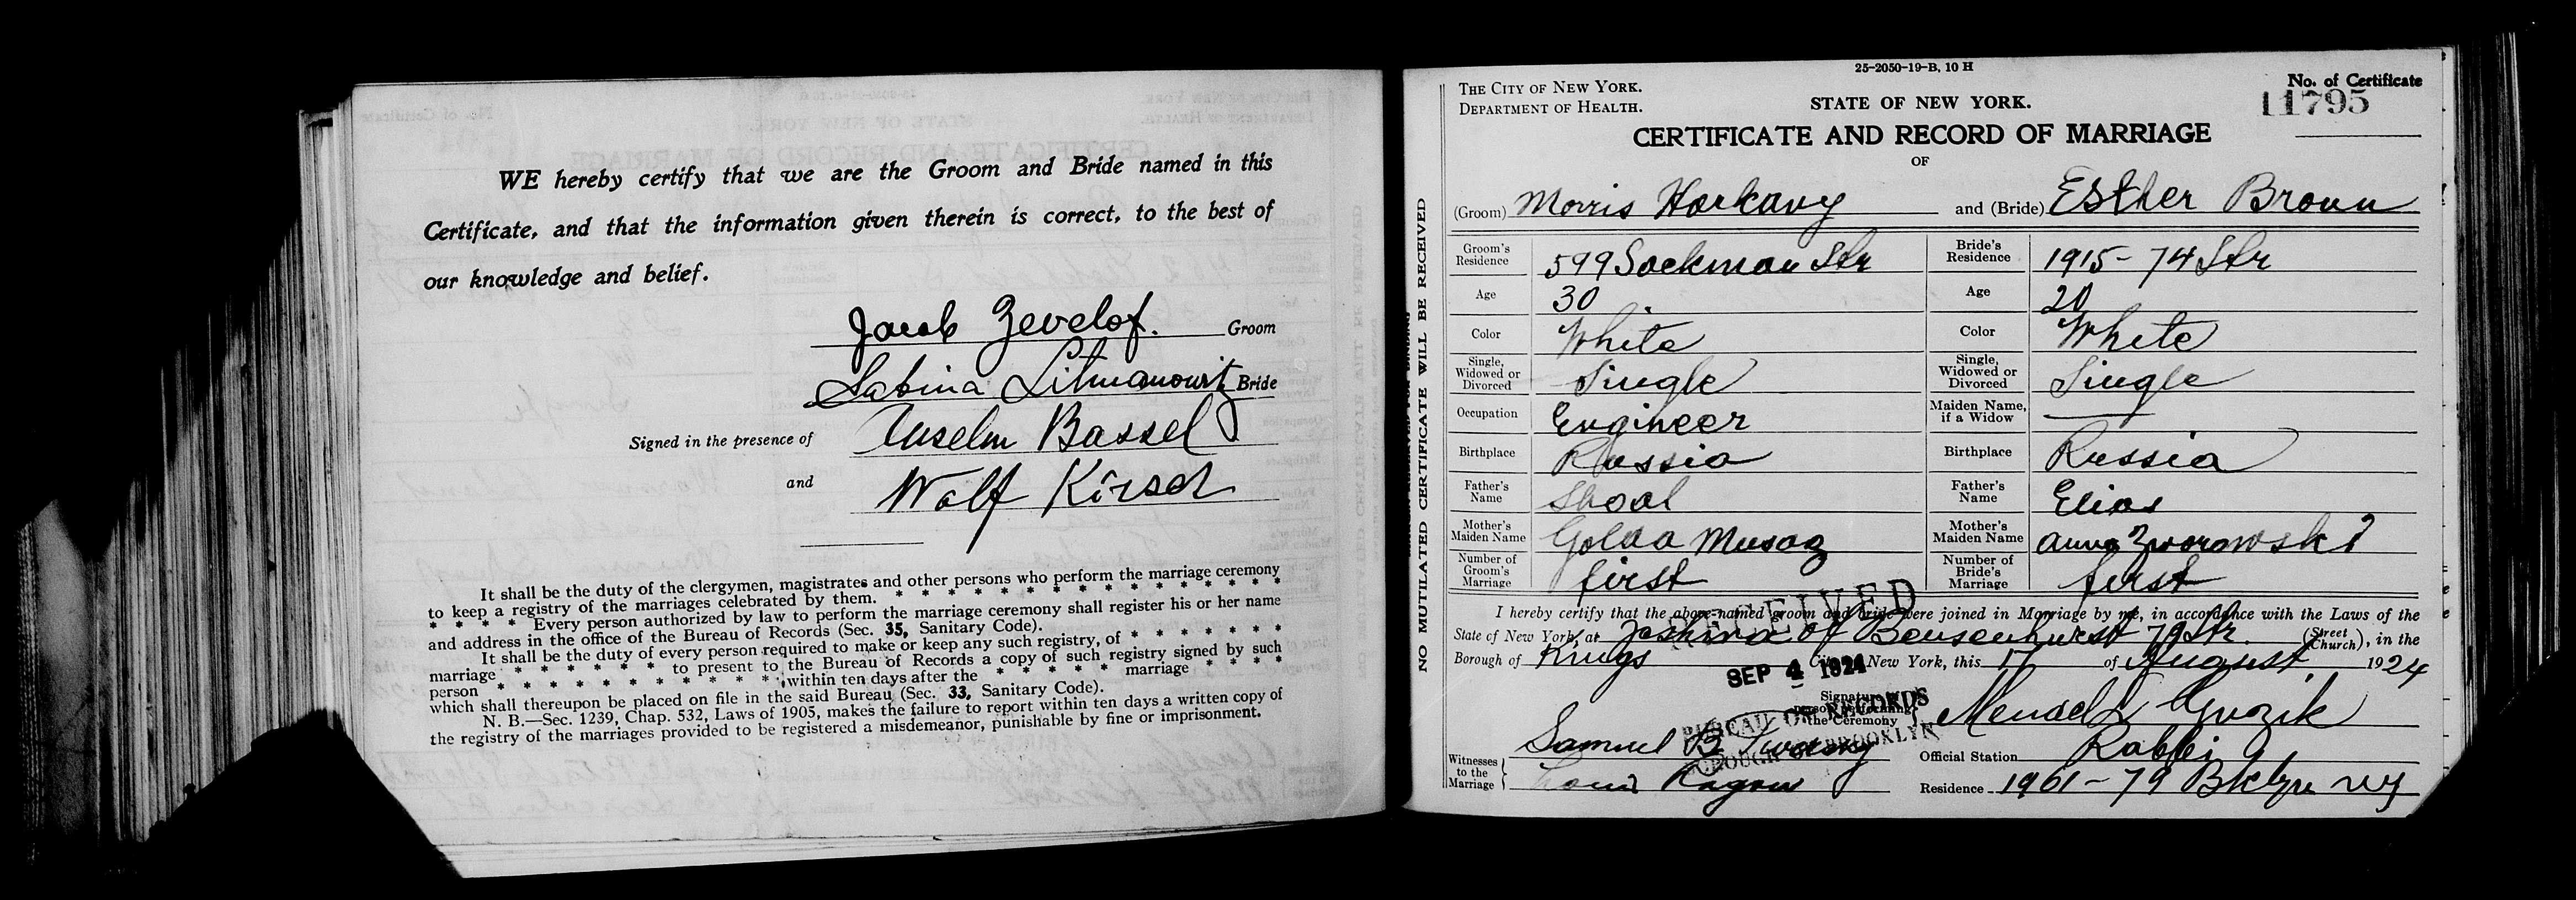 WE hereby certify that we are the Groom and Bride named in this
Certificate, and that the information given therein is correct, to the best of
our knowledge and belief.
Jacob Zevelof. Groom
Sabina Litmanowitz Bride
Signed in the presence of Anselm Bassel
and Wolf Kirsch
It shall be the duty of the clergymen, magistrates and other persons who perform the marriage ceremony
to keep a registry of the marriages celebrated by them. * * * * * * * * * * * *
* * * * Every person authorized by law to perform the marriage ceremony shall register his or her name
and address in the office of the Bureau of Records (Sec. 35, Sanitary Code).
It shall be the duty of every person required to make or keep any such registry, of * * * * * * *
marriage * * * * * * * to present to the Bureau of Records a copy of such registry signed by such
person * * * * * * * * * * * * within ten days after the * * * * * marriage * * * *
which shall thereupon be placed on file in the said Bureau (Sec. 33, Sanitary Code).
N. B.—Sec. 1239, Chap. 532, Laws of 1905, makes the failure to report within ten days a written copy of
the registry of the marriages provided to be registered a misdemeanor, punishable by fine or imprisonment.
NO MUTILATED CERTIFICATE WILL BE RECEIVED
25-2050-19-B, 10 H
THE CITY OF NEW YORK.
DEPARTMENT OF HEALTH.
STATE OF NEW YORK.
No. of Certificate
11795
CERTIFICATE AND RECORD OF MARRIAGE
OF
(Groom) Morris Harkavy and (Bride) Esther Brown
Groom's Residence 599 Sackman Str Bride's Residence 1915 - 74 Str
Age 30 Age 20
Color White Color White
Single, Widowed or Divorced Single Single, Widowed or Divorced Single
Occupation Engineer Maiden Name, if a Widow —
Birthplace Russia Birthplace Russia
Father's Name Shoal Father's Name Elias
Mother's Maiden Name Golda Mother's Maiden Name Anna
Number of Groom's Marriage first Number of Bride's Marriage first
I hereby certify that the above-named groom and bride were joined in Marriage by me, in accordance with the Laws of the
State of New York, at of Bensenhurst 79 Str. (Street Church), in the
Borough of Kings City of New York, this 17 of August 1924
RECEIVED
SEP 4 1924
BUREAU OF RECORDS
BOROUGH OF BROOKLYN
Signature of person performing the Ceremony Mendel Gvozik
Witnesses to the Marriage Samuel B
Official Station Rabbi
Residence 1961 - 79 Bklyn NY